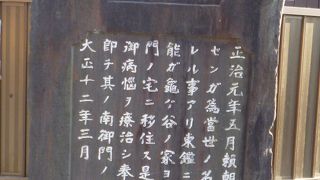 正治元年五月頼朝
センガ為當世ノ名
レル事アリ東鑑ニ
能ガ龜ガ谷ノ家ヨ
門ノ宅ニ移住ス是
御病惱ヲ療治シ奉
即チ其ノ南御門ノ
大正十二年三月